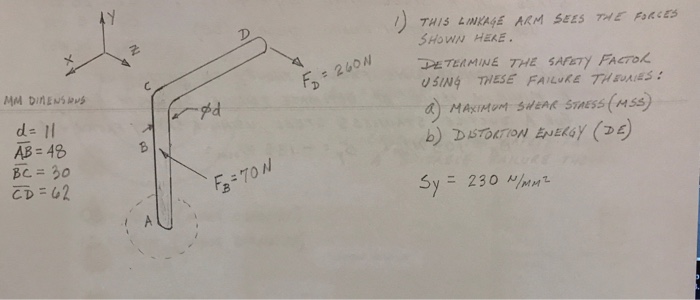 Y
X
Z
MM DIMENSIONS
d = 11
AB = 48
BC = 30
CD = 62
D
C
B
A
ød
F_D = 260 N
F_B = 70 N
1) THIS LINKAGE ARM SEES THE FORCES
SHOWN HERE.
DETERMINE THE SAFETY FACTOR
USING THESE FAILURE THEORIES:
a) MAXIMUM SHEAR STRESS (MSS)
b) DISTORTION ENERGY (DE)
Sy = 230 N/mm²